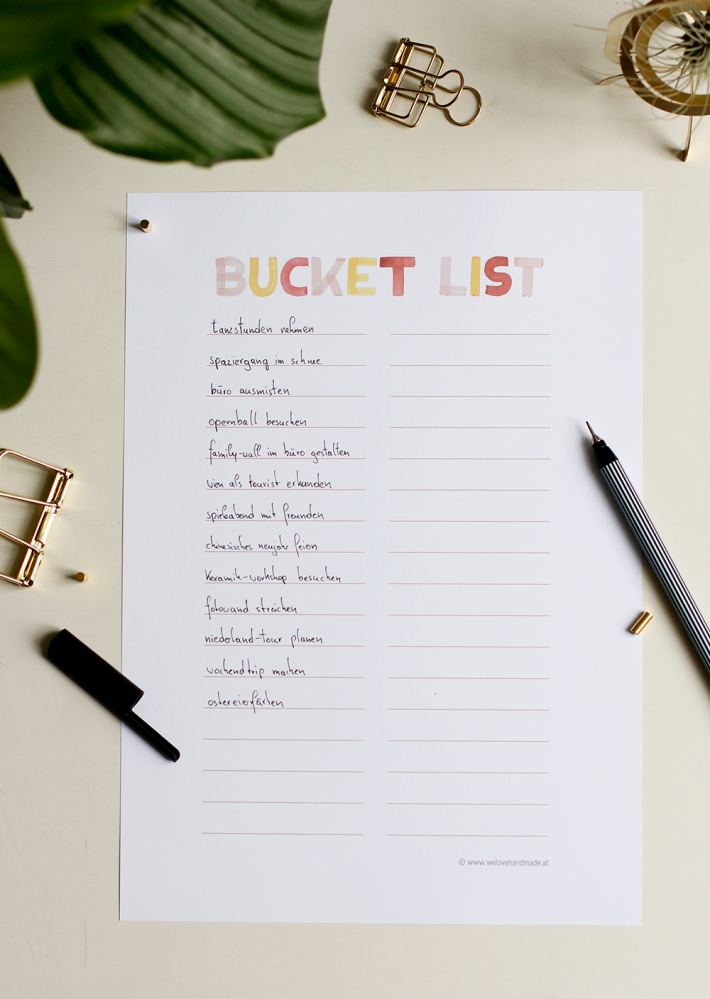 BUCKET LIST
tanzstunden nehmen
spaziergang im schnee
büro ausmisten
opernball besuchen
family-wall im büro gestalten
wien als tourist erkunden
spieleabend mit freunden
chinesisches neujahr feiern
keramik-workshop besuchen
fotowand streichen
niederland-tour planen
wochendtrip machen
ostereierfärben
© www.welovehandmade.at